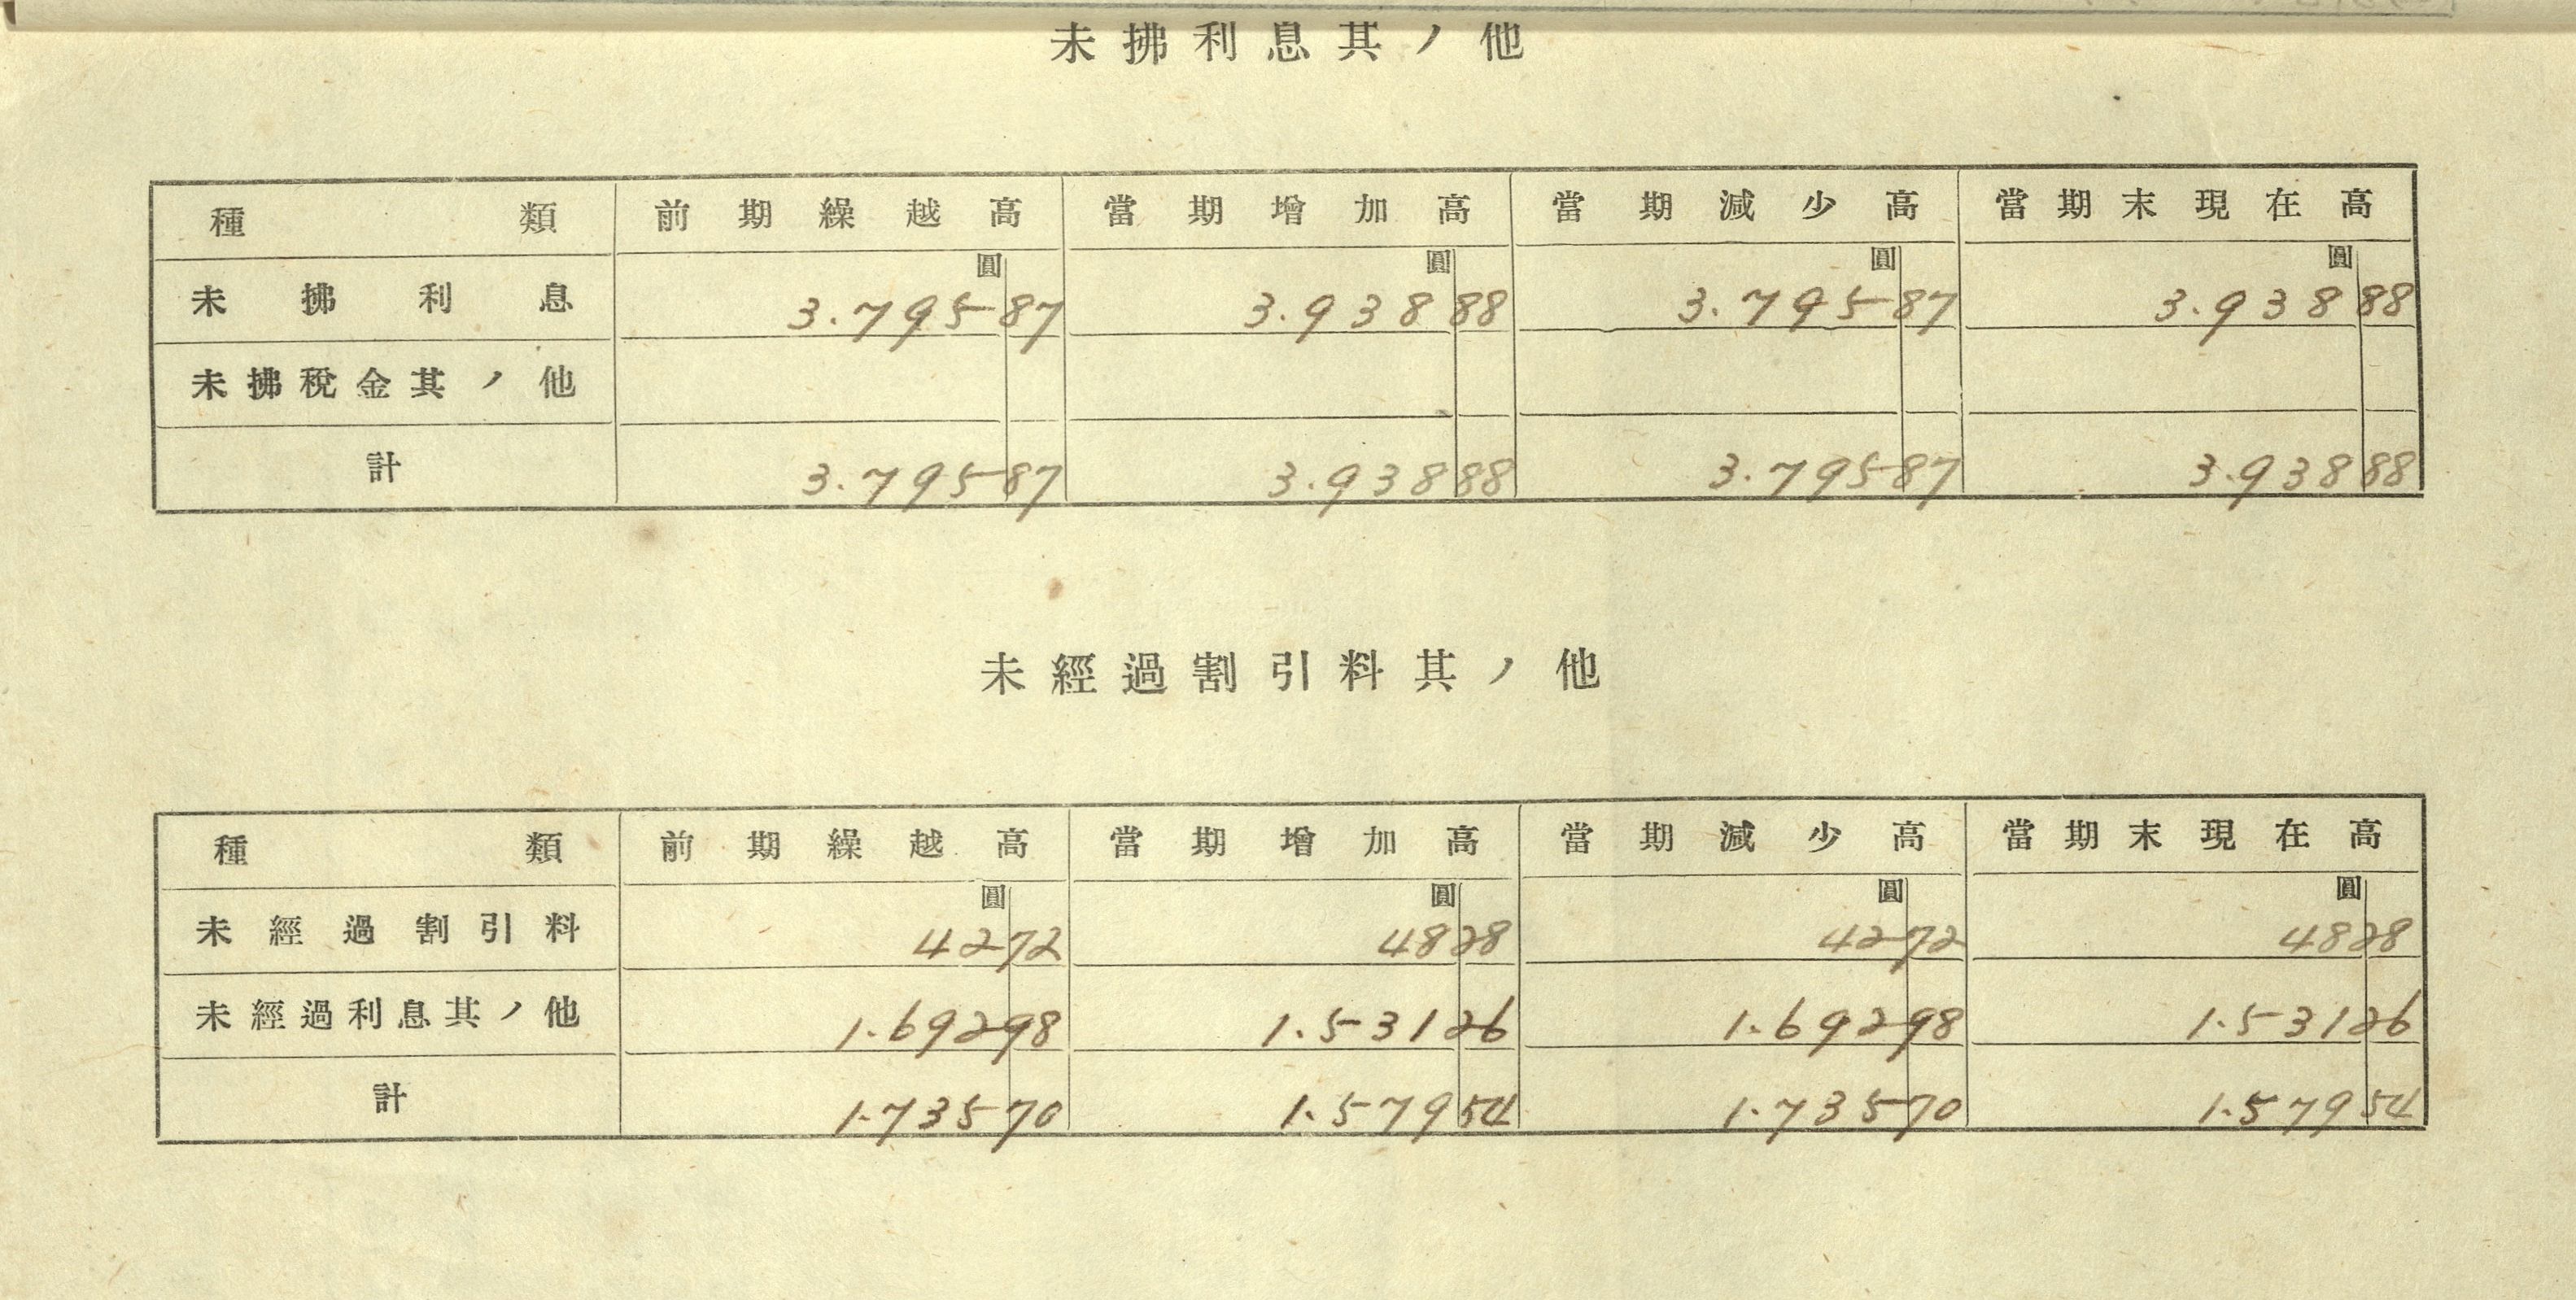 未拂利息其ノ他
種類 前期繰越高 當期增加高 當期減少高 當期末現在高
圓 圓 圓 圓
未拂利息 3.795 87 3.938 88 3.795 87 3.938 88
未拂稅金其ノ他
計 3.795 87 3.938 88 3.795 87 3.938 88
未經過割引料其ノ他
種類 前期繰越高 當期增加高 當期減少高 當期末現在高
圓 圓 圓 圓
未經過割引料 42 72 48 28 42 72 48 28
未經過利息其ノ他 1.692 98 1.531 26 1.692 98 1.531 26
計 1.735 70 1.579 54 1.735 70 1.579 54